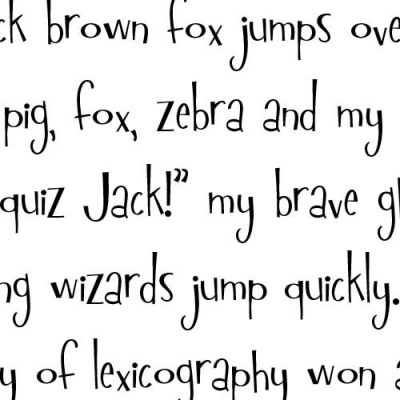 ck brown fox jumps ove
pig, fox, zebra and my
quiz Jack!” my brave gl
ng wizards jump quickly.
y of lexicography won a